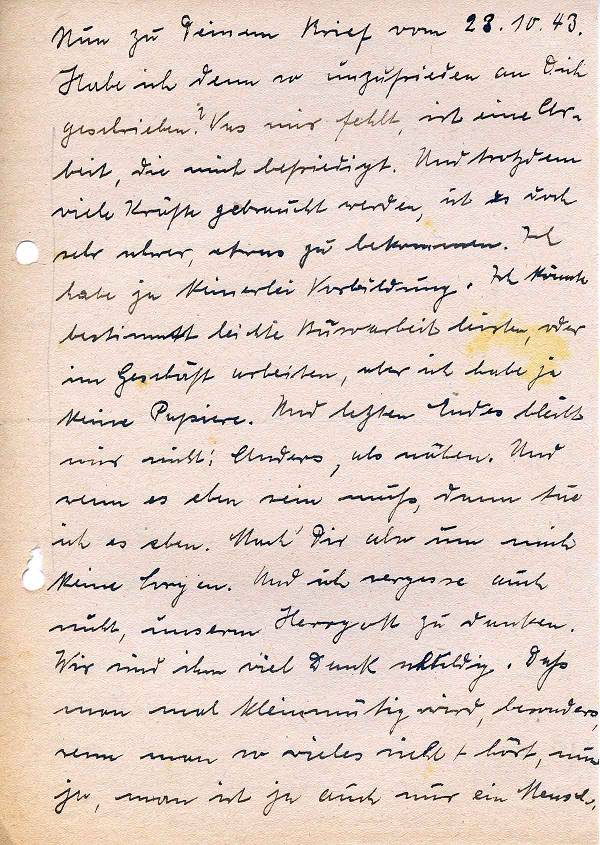 Nun zu Deinem Brief vom 23.10.43.
Habe ich denn so unzufrieden an Dich
geschrieben? Was mir fehlt, ist eine Ar-
beit, die mich befriedigt. Und trotzdem
viele Kräfte gebraucht werden, ist es doch
sehr schwer, etwas zu bekommen. Ich
habe ja keinerlei Vorbildung. Ich könnte
bestimmt leichte Büroarbeit leisten, oder
im Geschäft arbeiten, aber ich habe ja
keine Papiere. Und letzten Endes bleibt
mir nichts Anders, als nähen. Und
wenn es eben sein muß, dann tue
ich es eben. Mach' Dir also um mich
keine Sorgen. Und ich vergesse auch
nicht, unserm Herrgott zu danken.
Wir sind ihm viel Dank schuldig. Daß
man mal kleinmütig wird, besonders,
wenn man so vieles sieht + hört, nun
ja, man ist ja auch nur ein Mensch.